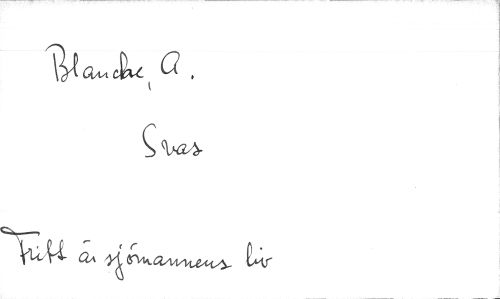 Blanche, A.
Svar
Fritt är sjömannens liv